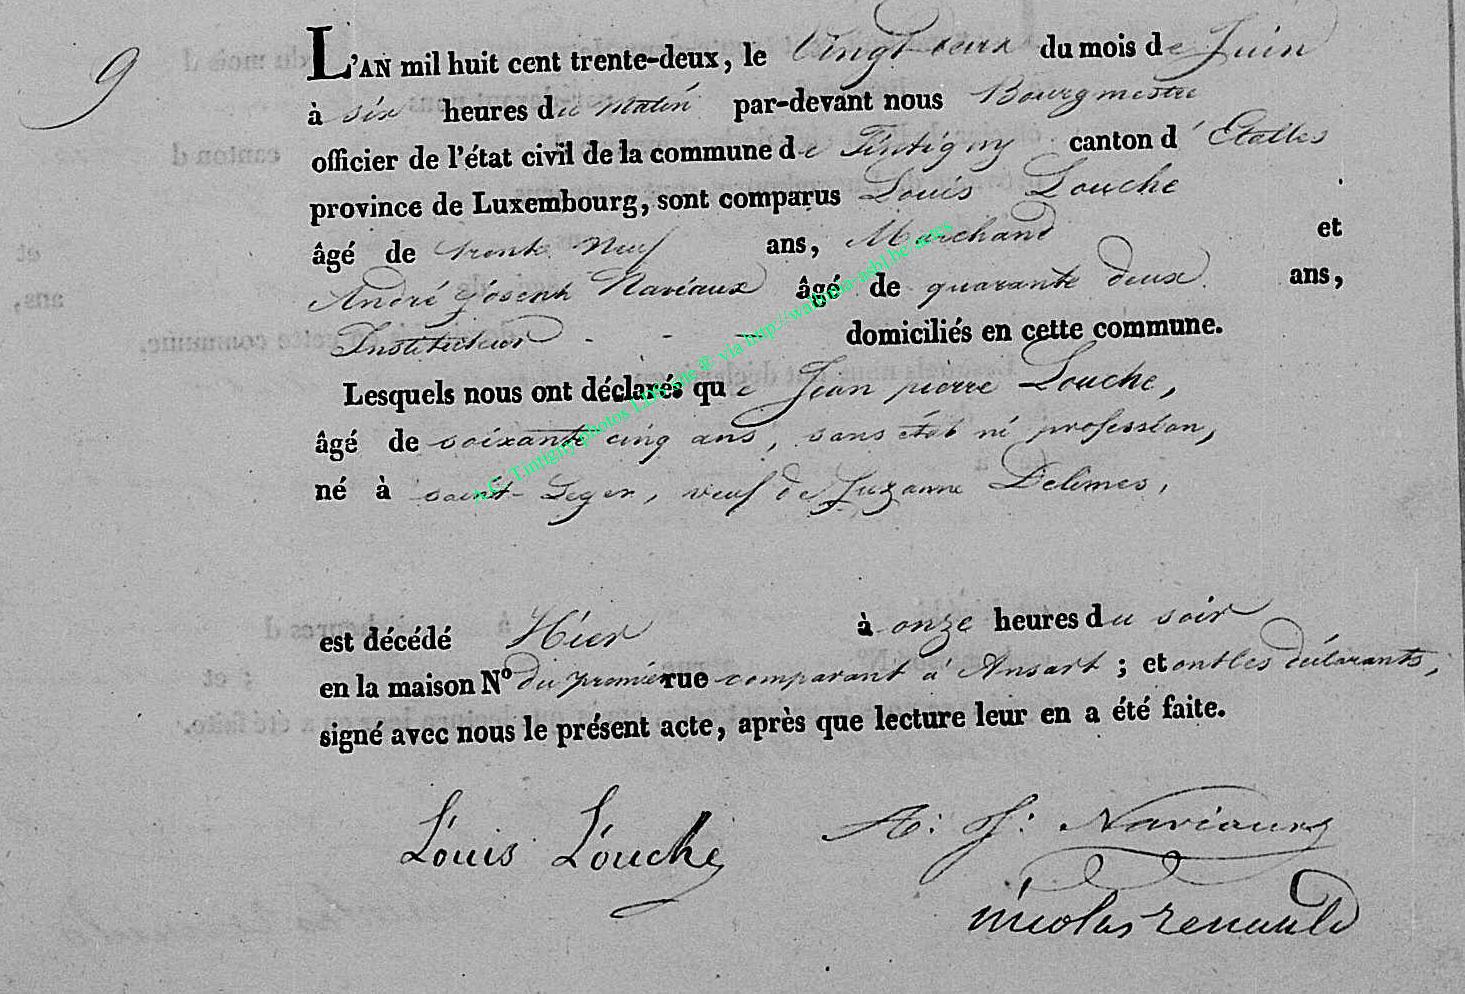 9
L'AN mil huit cent trente-deux, le vingt deux du mois de Juin
à six heures du matin par-devant nous Bourgmestre
officier de l'état civil de la commune de Tintigny canton d'Etalles
province de Luxembourg, sont comparus Louis Louche
âgé de trente Neuf ans, Marchand et
André Joseph Naviaux âgé de quarante deux ans,
Instituteur - - - domiciliés en cette commune.
Lesquels nous ont déclarés que Jean pierre Louche,
âgé de soixante cinq ans, sans état ni profession,
né à saint-Leger, veuf de Suzanne Delimes,
est décédé Hier à onze heures du soir
en la maison No du premier rue comparant à Ansart ; et ont les déclarants,
signé avec nous le présent acte, après que lecture leur en a été faite.
Louis Louche A: J: Naviaux
nicolas renauld
A.C. Tintigny photos via http://wallonia-asbl.be